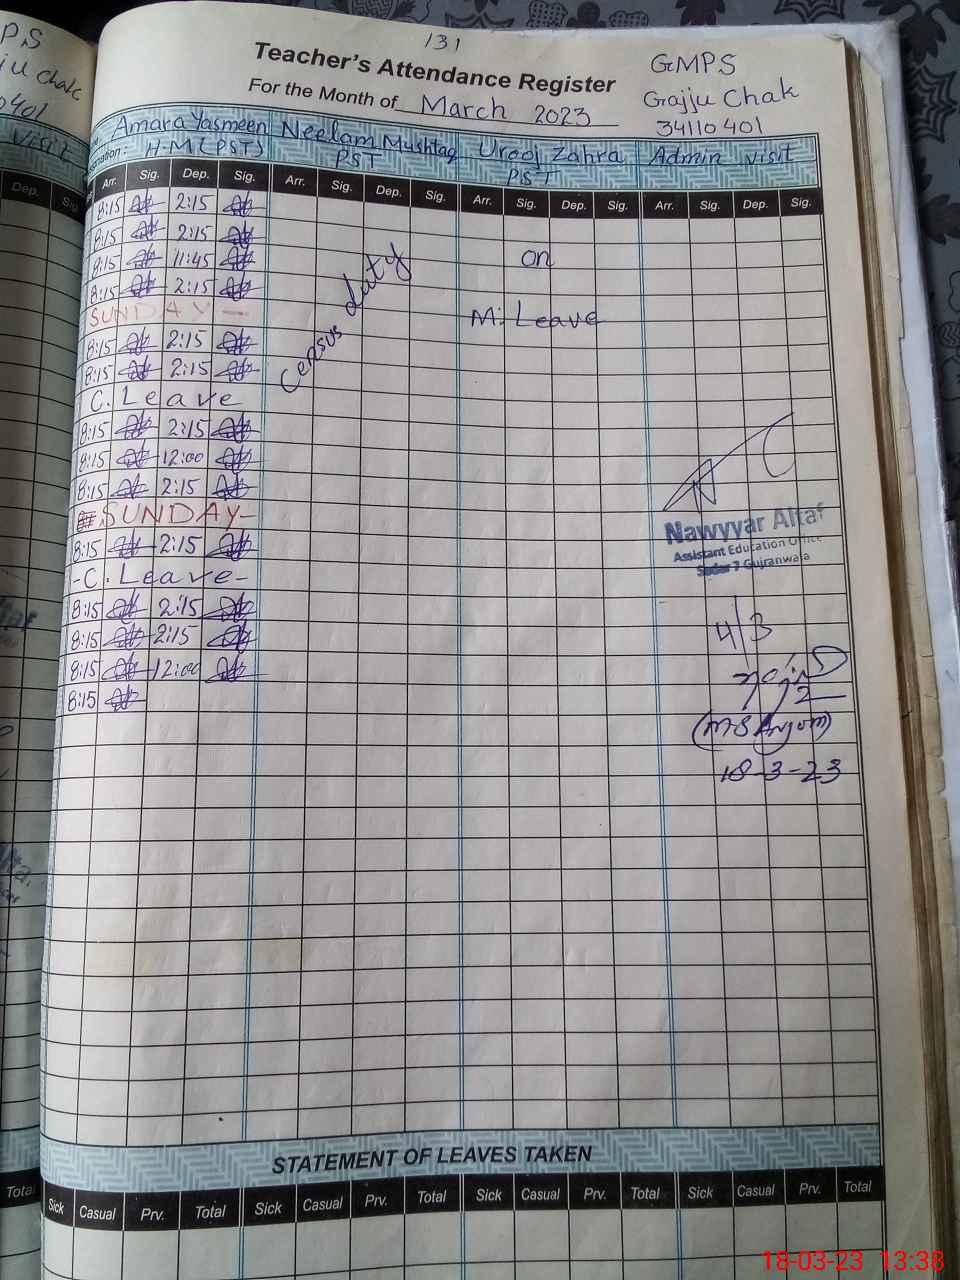 131
P.S
Teacher's Attendance Register
GMPS
For the Month of March 2023
Gajju Chak
34110401
Chak
0401
Visit
Amara Yasmeen Neelam Mushtaq Urooj Zahra Admin visit
H-M(PST) PST PST
Dep. Sig
Arr. Sig. Dep. Sig. Arr. Sig. Dep. Sig. Arr. Sig. Dep. Sig. Arr. Sig. Dep. Sig.
8:15 2:15
8:15 2:15
8:15 11:45
8:15 2:15
SUNDAY -
8:15 2:15
8:15 2:15
C. Leave
8:15 2:15
8:15 12:00
8:15 2:15
SUNDAY-
8:15 2:15
-C. Leave-
8:15 2:15
8:15 2:15
8:15 12:00
8:15
Census duty
on
M. Leave
Nawyyar Altaf
Assistant Education Office
Sadar 7 Gujranwala
4/3
(MS Anjom)
18-3-23
STATEMENT OF LEAVES TAKEN
Total
Sick Casual Prv. Total Sick Casual Prv. Total Sick Casual Prv. Total Sick Casual Prv. Total
18-03-23 13:38